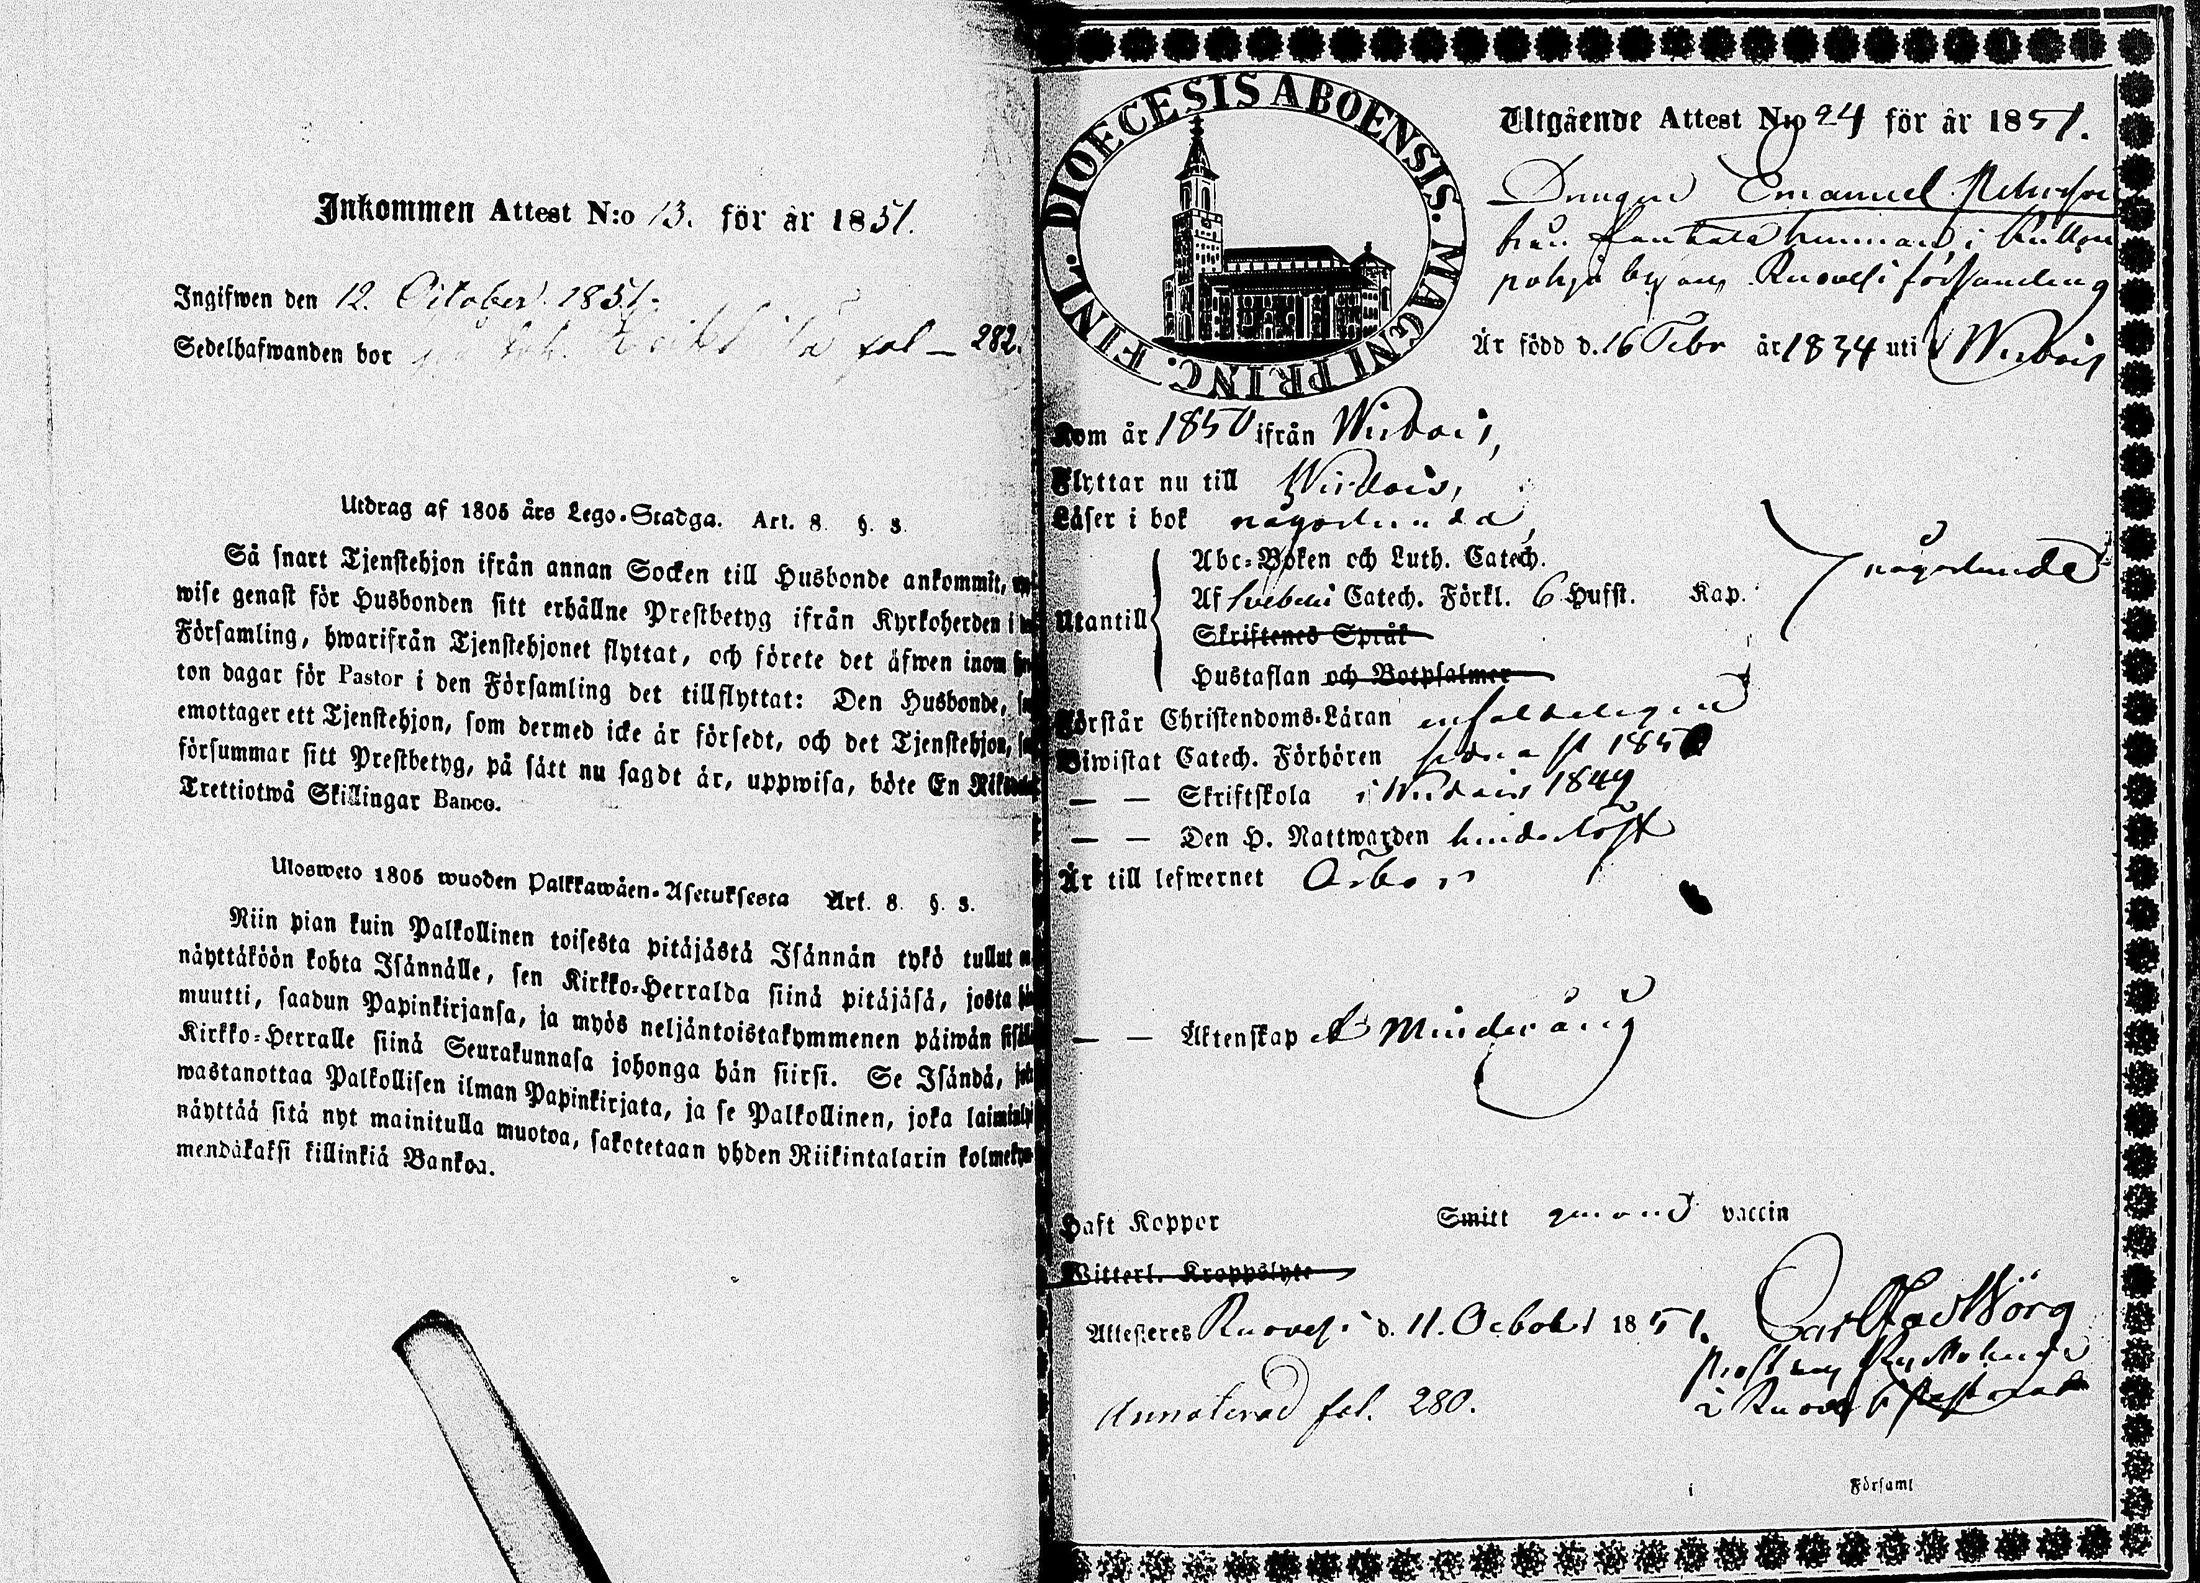 Inkommen Attest N:o 13. för år 1851.
Ingifwen den 12. October 1851.
Sedelhafwanden bor fol – 282.
Utdrag af 1805 års Lego-Stadga. Art. 8. §. 3.
Så snart Tjenstehjon ifrån annan Socken till Husbonde ankommit,
wise genast för Husbonden sitt erhållne Prestbetyg ifrån Kyrkoherden i
Församling, hwarifrån Tjenstehjonet flyttat, och förete det äfwen inom
ton dagar för Pastor i den Församling det tillflyttat: Den Husbonde,
emottager ett Tjenstehjon, som dermed icke är försedt, och det Tjenstehjon,
försummar sitt Prestbetyg, på sätt nu sagdt är, uppwisa, böte En
Trettiotwå Skillingar Banco.
Ulosweto 1805 wuoden Palkkawäen-Asetuksesta Art. 8. §. 3.
Niin pian kuin Palkollinen toisesta pitäjästä Isännän tykö tullut
näyttäköön kohta Isännälle, sen Kirkko-Herralda siinä pitäjäsä, josta
muutti, saadun Papinkirjansa, ja myös neljäntoistakymmenen päiwän
Kirkko-Herralle siinä Seurakunnasa johonga hän siirsi. Se Isändä,
wastanottaa Palkollisen ilman Papinkirjata, ja se Palkollinen, joka
näyttää sitä nyt mainitulla muotoa, sakotetaan yhden Riikintalarin
mendäkaksi killinkiä Bankoa.
DIOECESIS ABOENSIS. MAGNI PRINC. FINL.
Utgående Attest N:o 24 för år 1851.
Drengen Emanuel
från i
pohja by av Ruovesi församling
Är född d. 16 Febr år 1834 uti Wirdois
Kom år 1850 ifrån Wirdois,
Flyttar nu till Wirdois,
Läser i bok någorlunda,
Utantill
Abc-Boken och Luth. Catech.
Af Svebelii Catech. Förkl. 6 Hufst. Kap.
Skriftenes Språk
Hustaflan och Botpsalmer
någorlunda
Förstår Christendoms-Läran enfaldeligen
Biwistat Catech. Förhören 1850
— — Skriftskola i Wirdois 1849
— — Den H. Nattwarden
Är till lefwernet
— — Äktenskap Minderårig
Haft Koppor Smitt genom vaccin
Witterl. Kroppslyte
Attesteres Ruovesi d. 11. October 1851.
i Ruovesi
Annoterad fol. 280.
i Församl